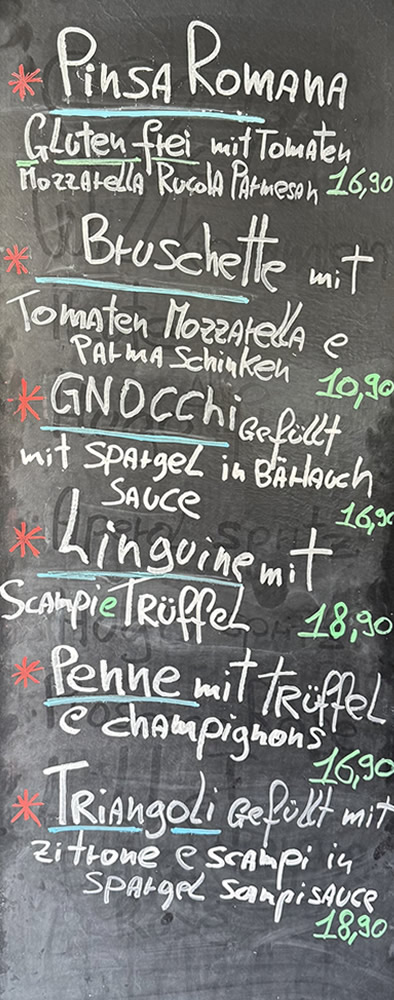 * Pinsa Romana
Glutenfrei mit Tomaten
Mozzarella Rucola Parmesan 16,90
* Bruschette mit
Tomaten Mozzarella e
Parma Schinken
10,90
* GNOCCHi Gefüllt
mit Spargel in Bärlauch
Sauce
16,90
* Linguine mit
Scampi e Trüffel 18,90
* Penne mit Trüffel
e champignons
16,90
* Triangoli Gefüllt mit
zitrone e scampi in
Spargel Scampisauce
18,90